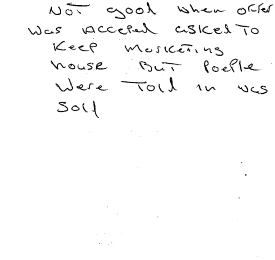 NOT good when offer
was accepted asked to
Keep Marketing
house But People
Were Told it was
Sold